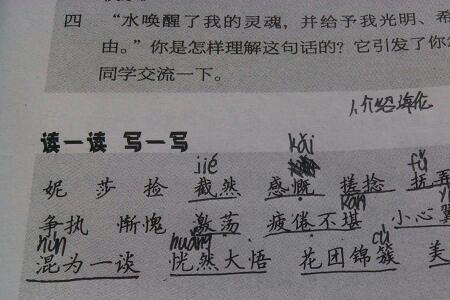 四 “水唤醒了我的灵魂，并给予我光明、希
由。”你是怎样理解这句话的？它引发了你
同学交流一下。
1.介绍海伦
读一读 写一写
jié kǎi fǔ
妮 莎 捡 截然 感慨 搓捻 抚弄
kān
争执 惭愧 激荡 疲倦不堪 小心翼
hùn huǎng cù
混为一谈 恍然大悟 花团锦簇 美